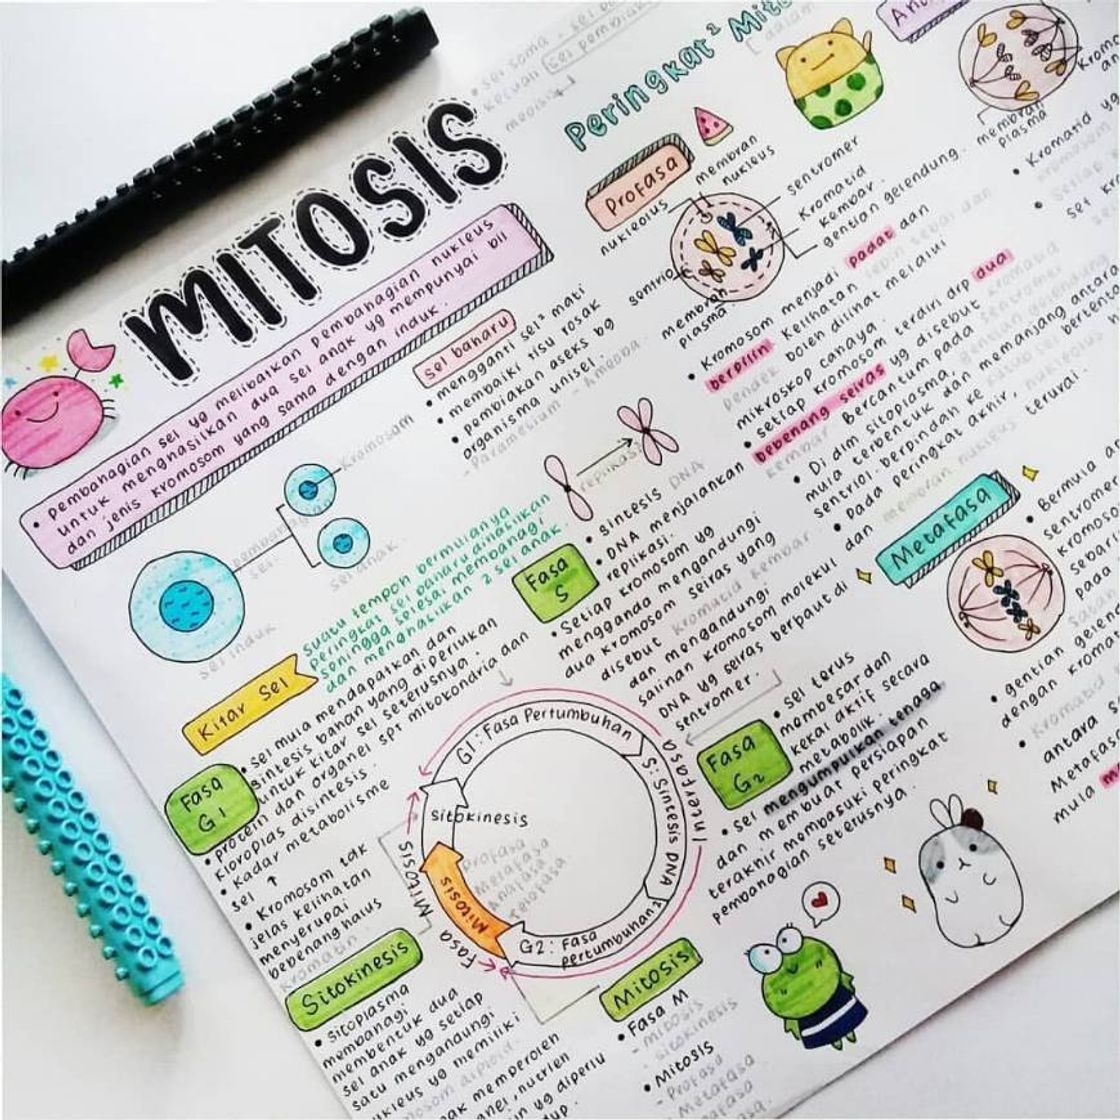 MITOSIS
• Pembahagian sel yg melibatkan pembahagian nukleus
untuk menghasilkan dua sel anak yg mempunyai bil
dan jenis kromosom yang sama dengan induk.
• sel soma - sel ba
kecuali sel pembia
meiosis
sel baharu
• mengganti sel² mati
• membaiki tisu rosak
• pembiakan aseks bg
organisma unisel.
- Paramesium - Ameoba.
Kromosom
sel induk
sel anak
replikasi
Kitar Sel
Suatu tempoh bermulanya
peringkat sel baharu dihasilkan
sehingga selesai membahagi
dan menghasilkan 2 sel anak.
Fasa
G1
• sel mula mendapatkan dan
sintesis bahan yang diperlukan
untuk kitar sel seterusnya.
• protein dan organel spt mitokondria dan
kloroplas disintesis.
• Kadar metabolisme
sel ↑
• Kromosom tak
jelas kelihatan
menyerupai
bebenang halus
Kromatin
Fasa
S
• sintesis DNA
• DNA menjalankan
replikasi.
• Setiap kromosom yg
mengganda mengandungi
dua kromosom seiras yang
disebut Kromatid kembar
dan mengandungi
salinan kromosom molekul
DNA yg seiras
berpaut di
sentromer.
Fasa
G2
• sel terus
membesar dan
kekal aktif secara
metabolik.
• sel mengumpulkan tenaga
dan membuat persiapan
terakhir memasuki peringkat
pembahagian seterusnya.
G1: Fasa Pertumbuhan
S: Sintesis DNA
G2: Fasa
pertumbuhan
Interfasa
sitokinesis
Mitosis
Profasa
Metafasa
Anafasa
Telofasa
Fasa Mitosis
Sitokinesis
• sitoplasma
membahagi
membentuk dua
sel anak yg setiap
satu mengandungi
nukleus yg memiliki
Mitosis
• Fasa M
- mitosis
- sitokinesis
• Mitosis
- Profasa
- Metafasa
Peringkat² Mito
Profasa
membran
nukleus
sentromer
Kromatid
kembar.
gentian gelendong.
nukleolus
sentriol
membran
plasma
• Kromosom menjadi padat dan
berpilin. Kelihatan lepih tebal dan
pendek boleh dilihat melalui
mikroskop cahaya.
• setiap kromosom terdiri drp dua
bebenang seiras yg disebut kromatid
kembar Bercantum pada sentromer
• Di dlm sitoplasma, gentian gelendong
mula terbentuk dan memanjang antara
sentriol. berpindah ke kutub sel bertenta
• Pada peringkat akhir, nukleolus
dan membran nukleus terurai.
An
membran
plasma
• Kromatid
Metafasa
• Bermula a
sentromer
kromoso
pada
• gentian gelen
dengan kroma
• Kromatid
antara s
Metafas
mula